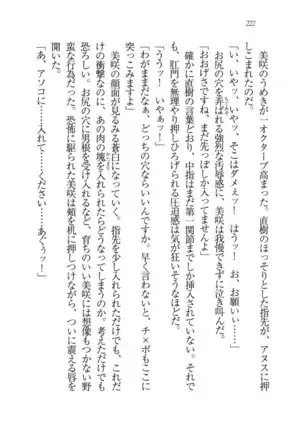 222
美咲のうめきが一オクターブ高まった。直樹のほっそりとした指先が、アヌスに押
しこまれたのだ。
「い、いやッ、いやッ、そこはダメぇッ！　はうッ！　お、お願いぃ……ッ！」
お尻の穴を弄ばれる強烈な汚辱感に、美咲は我慢できずに泣き叫んだ。
「おおげさですね、まだ先っぽしか入ってませんよ」
確かに直樹の言葉どおり、中指はまだ第一関節までしか挿入されていない。それで
も、肛門を無理やり押しひろげられる圧迫感は気が狂いそうなほどだ。
「ううッ！　いやぁッ！」
「わがままだなぁ、どっちの穴ならいいんですか。早く言わないと、チ×ポもここに
突っこみますよ」
美咲の顔面が見るみる蒼白になっていく。指先を少し入れられただけでも、これだ
けの衝撃なのに、あの肉の塊を入れられたらどうなってしまうのか。考えただけでも
恐ろしい。お尻の穴に男根を受け入れるなど、育ちのいい美咲には想像もつかない野
蛮な行為だった。恐怖に駆られた美咲は頰を机に押しつけながら、ついに震える唇を
開いた。
「あ、アソコに……入れて……ください……あぐうッ！」